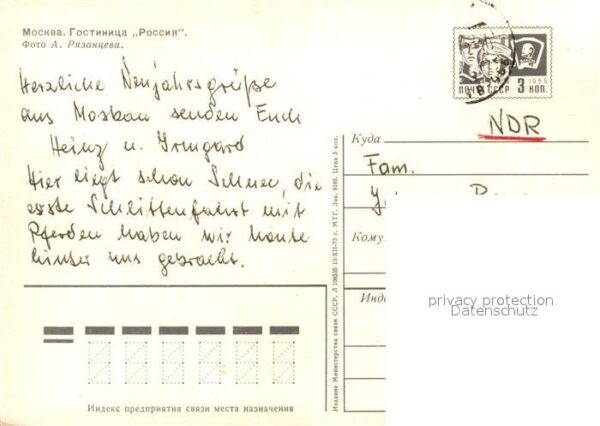 Москва. Гостиница „Россия".
Фото А. Рязанцева.
Herzliche Neujahrsgrüße
aus Moskau senden Euch
Heinz u. Irmgard
Hier liegt schon Schnee, die
erste Schlittenfahrt mit
Pferden haben wir heute
hinter uns gebracht.
ПОЧТА СССР 3 КОП.
1966
NDR
Куда
Fam.
Кому
Инде
privacy protection
Datenschutz
Издание Министерства связи СССР. 13/XII-73 г. МТГ. Зак. Цена 3 коп.
Индекс предприятия связи места назначения